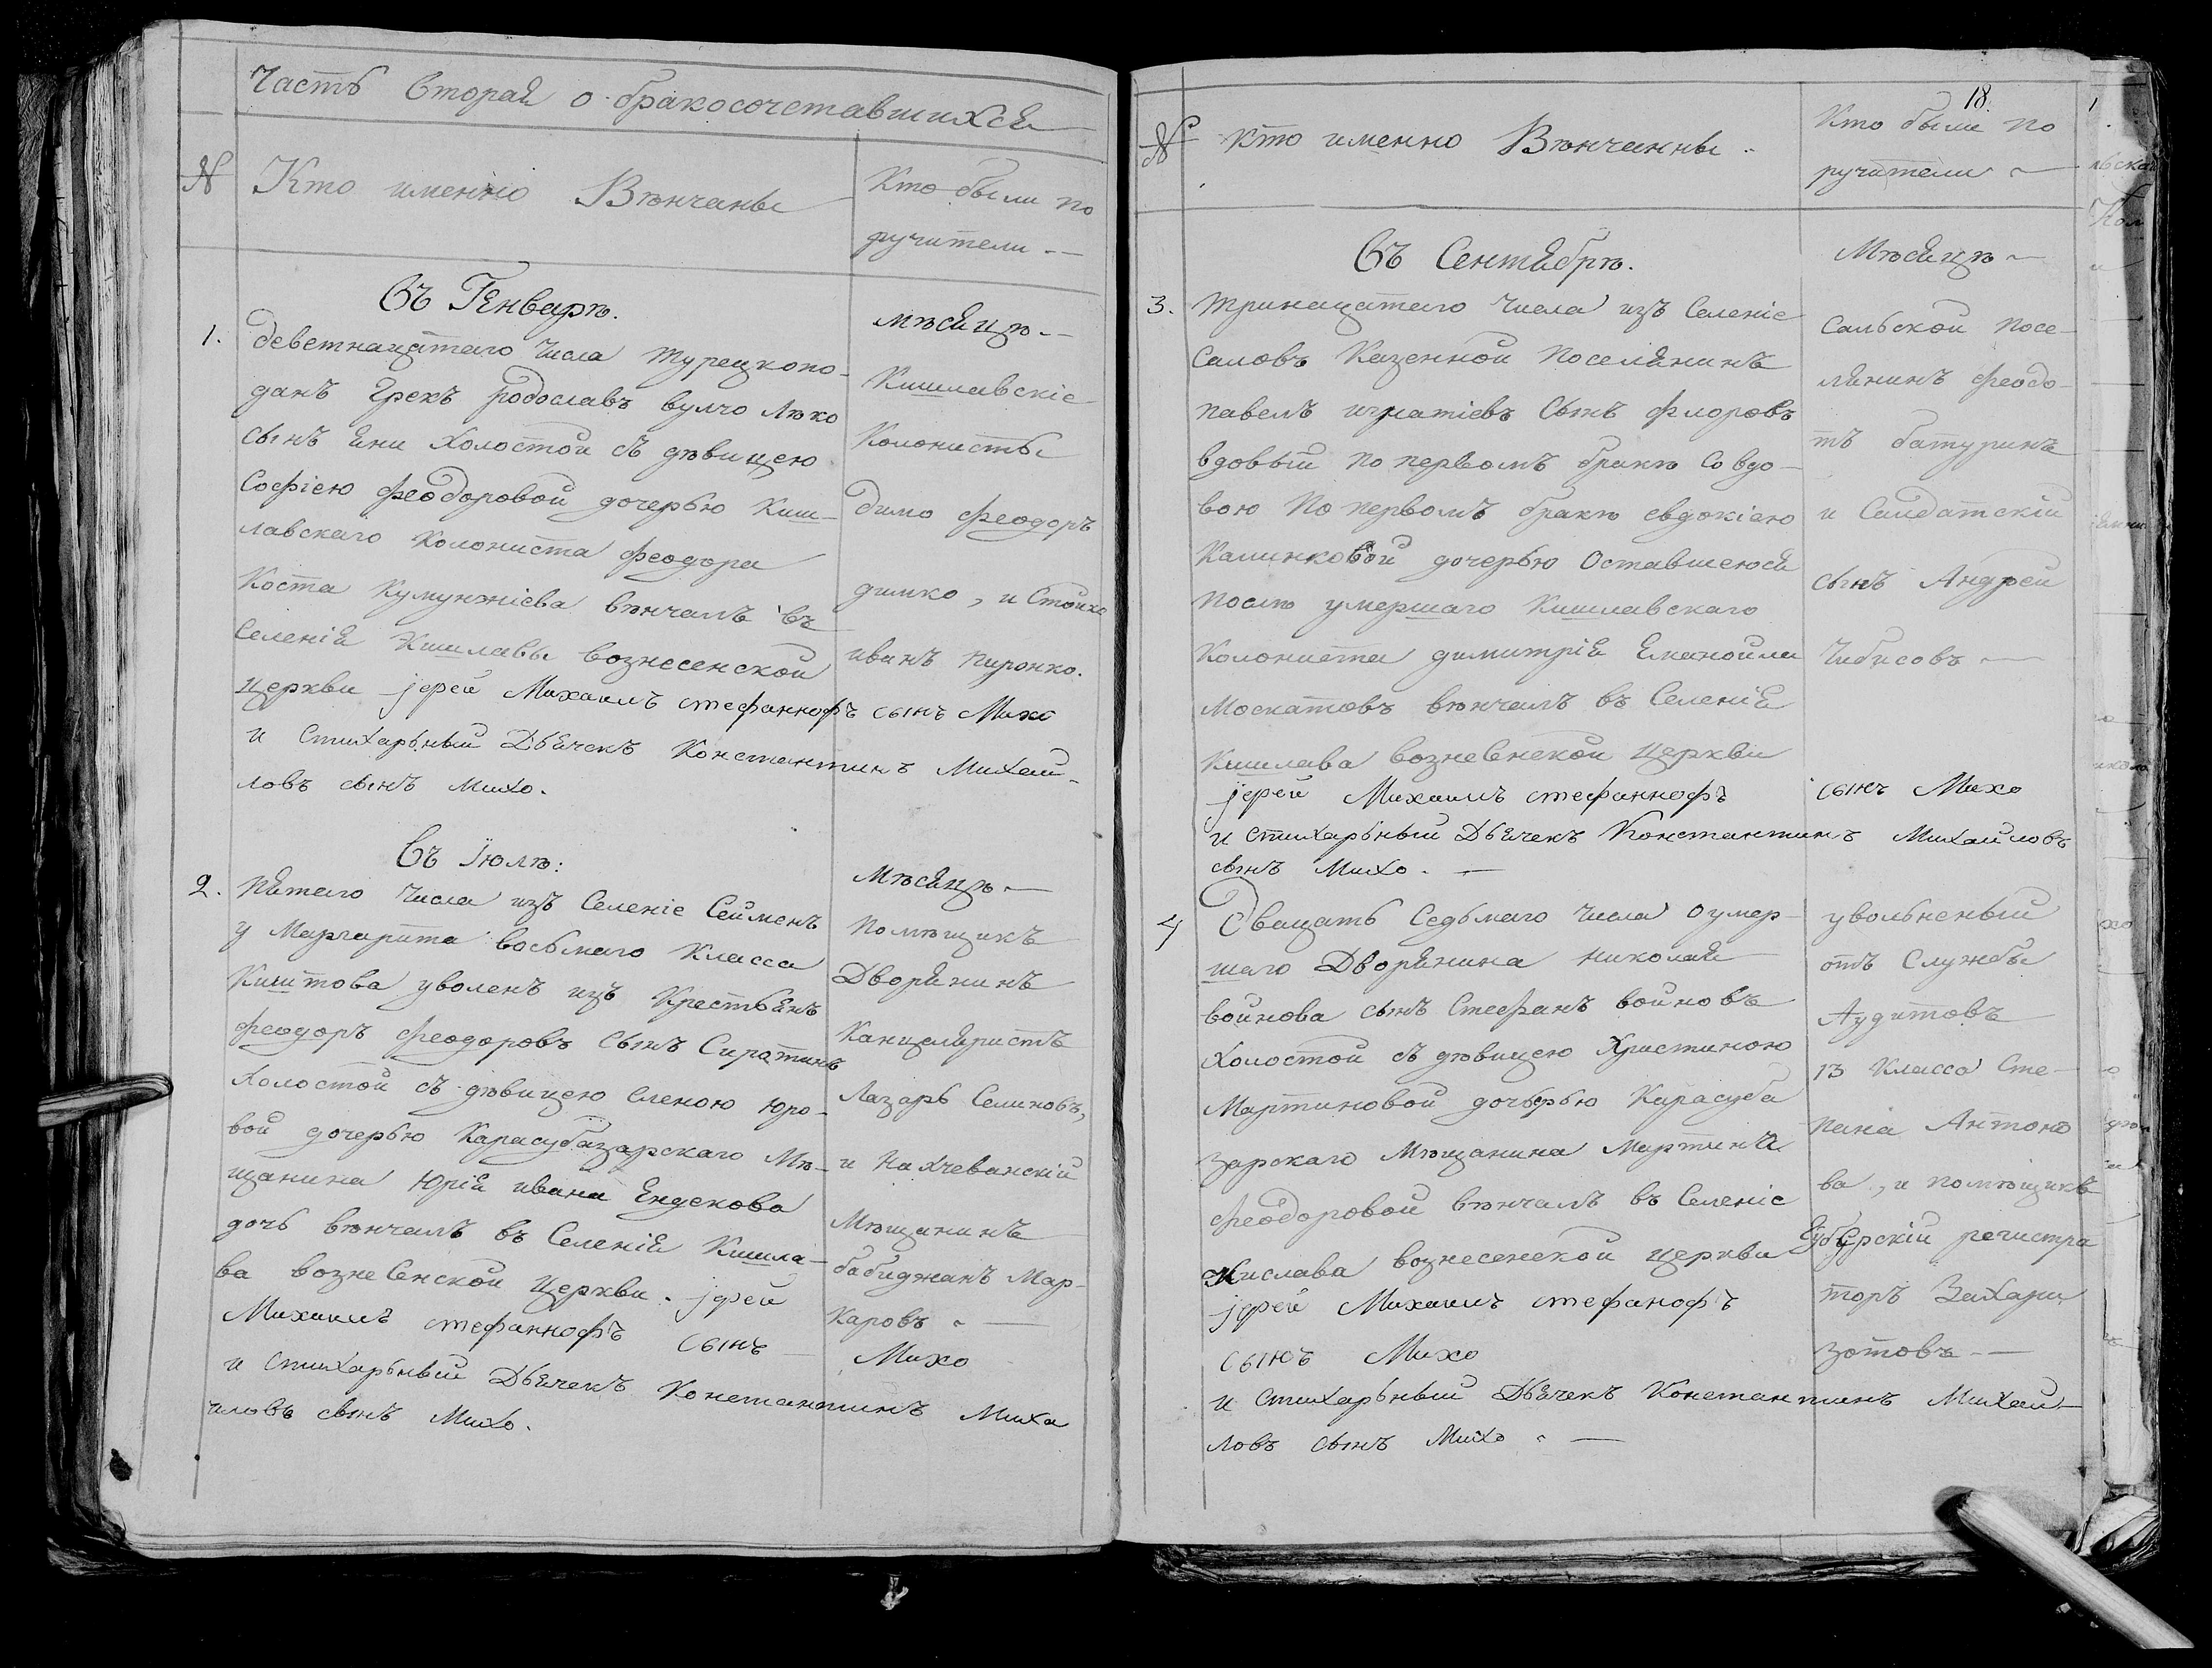 Часть Вторая о бракосочетавшихся
№ Кто именно Вѣнчаны
Кто были по
ручители. —
Въ Генварѣ.
мѣсяцѣ. —
1. деветнацатаго Числа турецкопо-
данъ Грекъ родославъ вулчо Люко
сынъ Яни Холостой съ дѣвицею
Софіею феодоровой дочерью Киш-
лавскаго Колониста феодора
Коста Кумунжіева вѣнчалъ въ
Селенія Кишлавы вознесенской
Церкви јерей Михаилъ стефаннофъ сынъ Михо
и Стихарьный Дьячекъ Константинъ Михай-
ловъ сынъ михо.
Кишлавскіе
Колонисты
димо феодоръ
димко, и Стойко
иванъ пиронко.
Въ Јюлѣ:
Мѣсяцѣ. —
2. пятаго Числа изъ Селеніе Сейменъ
у Маргарита восьмаго Класса
Киштова уволенъ изъ Крестьянъ
феодоръ феодоровъ Сынъ Сиротинъ
Холостой съ дѣвицею Еленою Юро-
вой дочерью Карасубазарскаго Мѣ-
щанина Юрія ивана Ендекова
дочь вѣнчалъ въ Селенія Кишла-
ва вознесенской Церкви. јерей
Михаилъ стефанноофъ сынъ Михо
и Стихарьный Дьячекъ Константинъ Миха
иловъ сынъ Михо.
Помѣщикъ
Дворянинъ
Канцеляристъ
Лазарь Селиновъ,
и Нахчеванскій
Мѣщанинъ
бабиджанъ Мар-
каровъ. —
18.
№ Кто именно Вѣнчанны.
Кто были по
ручители —
Въ Сентябрѣ.
Мѣсяцѣ —
3. тринацатаго Числа изъ Селеніе
Саловъ Казенной поселянинъ
павелъ игнатіевъ Сынъ флоровъ
вдовый по первомъ бракѣ со вдо-
вою по первомъ бракѣ евдокіею
Калинковой дочерью Оставшеюся
послѣ умершаго Кишлавскаго
Колониста димитрія Еманоила
Москатовъ вѣнчалъ въ Селенія
Кишлава вознесенской Церкви
јерей Михаилъ стефанноофъ сынъ Михо
и стихарьный Дьячекъ Константинъ Михайловъ
сынъ Михо. —
Сальской посе-
лянинъ феодо-
тъ батуринъ
и Салдатскій
сынъ Андрей
Чибисовъ —
4 Двацать Седьмаго Числа оумер-
шаго Дворянина николая
войнова сынъ Стефанъ войновъ
Холостой съ дѣвицею Христиною
Мартиновой дочерью Карасуба
зарскаго Мѣщанина Мартина
феодоровой вѣнчалъ въ Селеніе
Кислава вознесенской Церкви
јерей Михаилъ стефаноофъ
сынъ Михо
и стихарьный Дьячекъ Константинъ Михай-
ловъ сынъ Михо. —
увольненый
отъ Службы
Аудитовъ
13 Класса Сте-
пана Антоно
ва, и помѣщикъ
Губерскій регистра
торъ Захари
зотовъ —